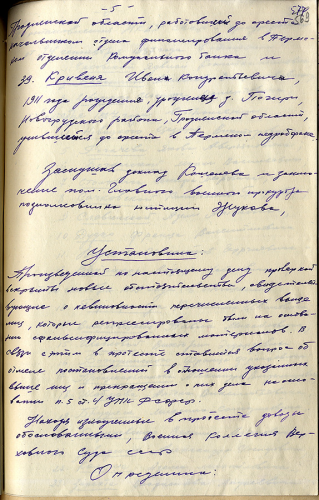 - 5 -
Гродненской области, работавшей до ареста
начальником отдела финансирования в Пермском
отделении Коммунального банка и
39. Кривеня Ивана Кондратьевича,
1911 года рождения, уроженца д.
Новогрудского района, Гродненской области,
учившегося до ареста в Пермском
Заслушав доклад и заклю-
чение пом. Главного военного прокурора
подполковника юстиции Жукова,
Установила:
Произведенной по настоящему делу проверкой
вскрыты новые обстоятельства, свидетельст-
вующие о невиновности перечисленных выше
лиц, которые репрессированы были на основа-
нии сфальсифицированных материалов. В
связи с этим в протесте ставится вопрос об
отмене постановлений в отношении указанных
выше лиц и прекращении о них дела на осно-
вании п. 5 ст. 4 УПК РСФСР.
Находя изложенные в протесте доводы
обоснованными, Военная Коллегия Вер-
ховного Суда СССР
Определила: